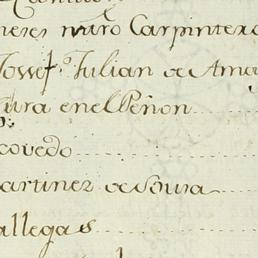 neses mrõ Carpintero
Josseph Julian de Ama
Cura en el Peñon
covedo
artinez de Sousa
allegas